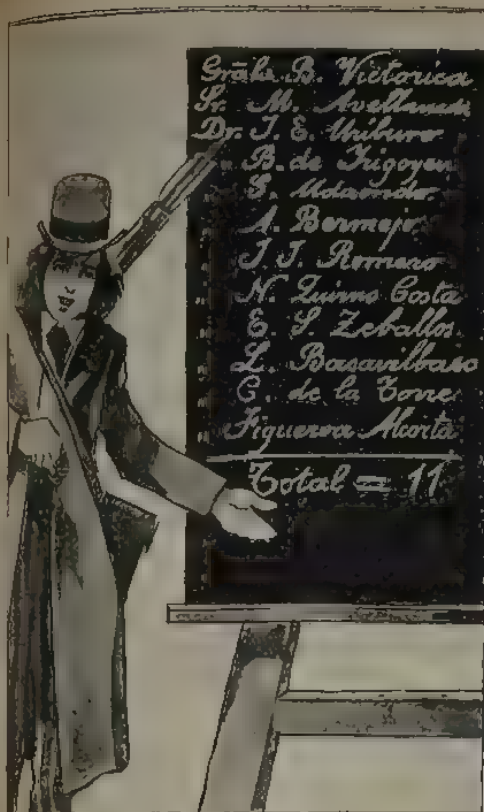 Grāl. B. Victorica
Sr. M. Avellaneda
Dr. J. E. Uriburu
„ B. de Irigoyen
„ G. Udaondo
„ A. Bermejo
„ J. J. Romero
„ N. Quirno Costa
„ E. S. Zeballos
„ L. Basavilbaso
„ C. de la Torre
„ Figueroa Alcorta
Total = 11